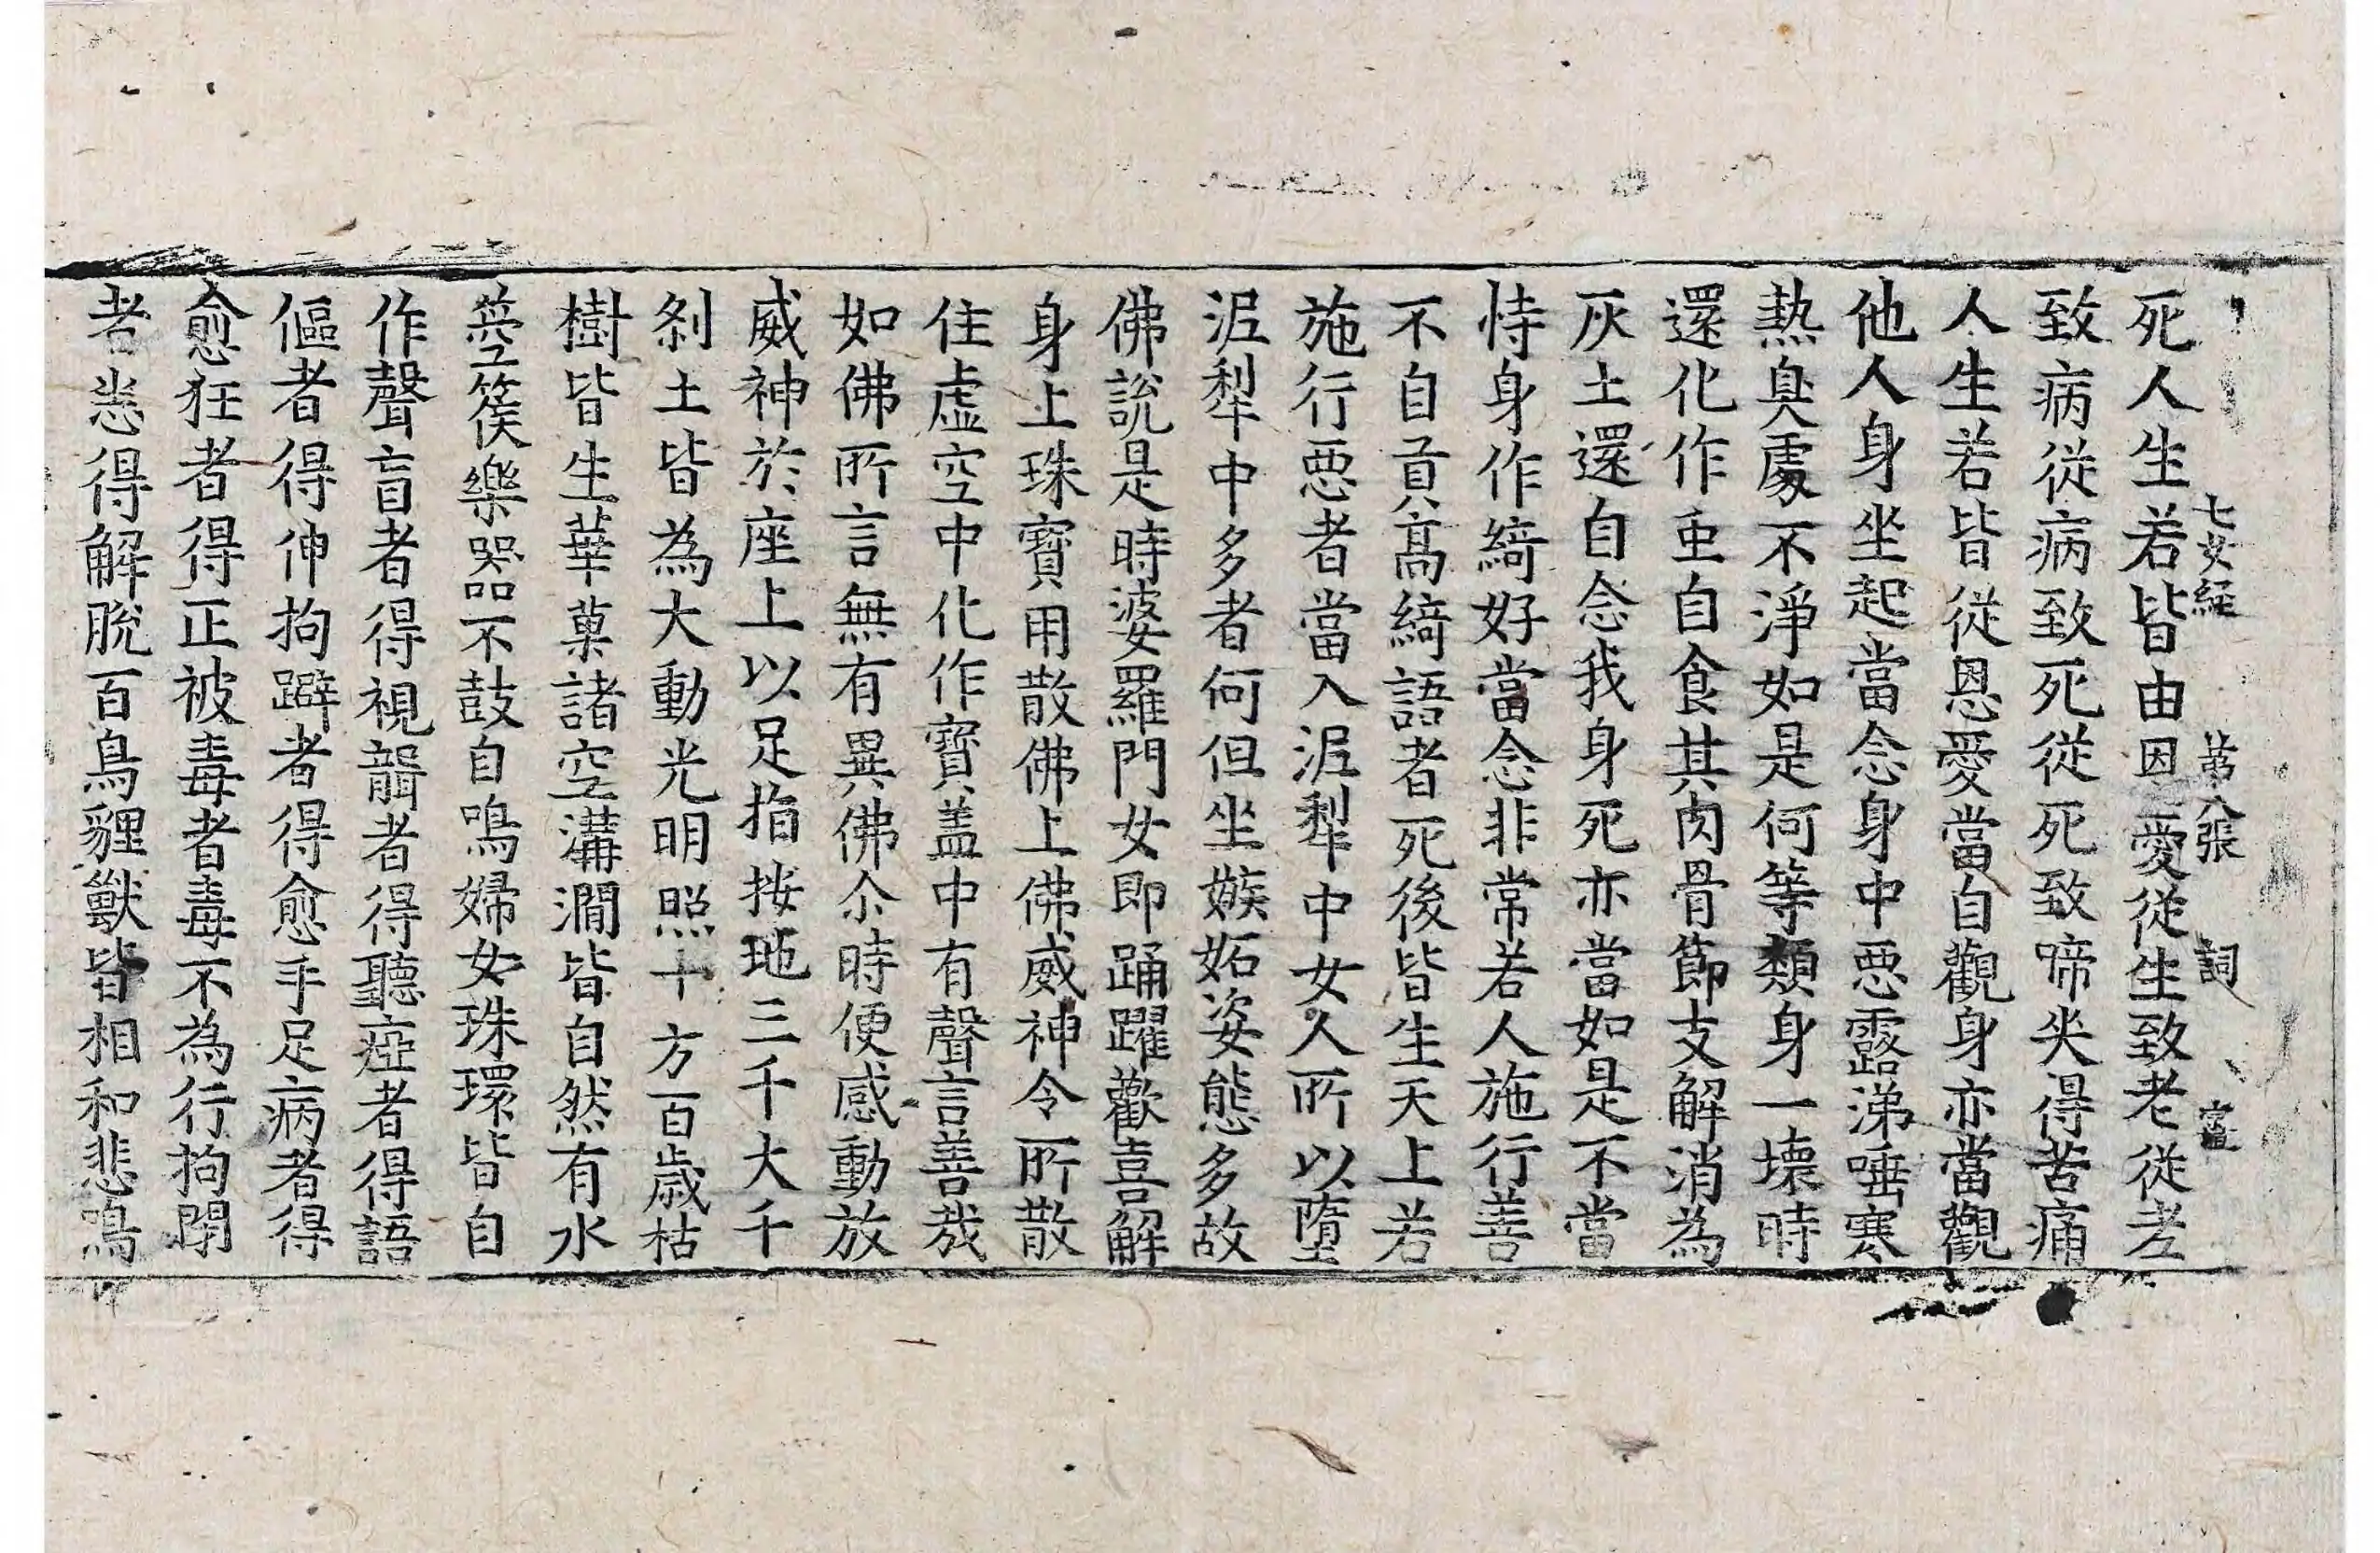 七女経 第八張 詞
死人生若皆由因愛従生致老従老
致病従病致死従死致啼哭得苦痛
人生若皆従恩愛當自觀身亦當觀
他人身坐起當念身中惡露涕唾寒
熱臭處不淨如是何等類身一壞時
還化作虫自食其肉骨節支解消為
灰土還自念我身死亦當如是不當
恃身作綺好當念非常若人施行善
不自貢高綺語者死後皆生天上若
施行惡者當入泥犁中女人所以墮
泥犁中多者何但坐嫉妬姿態多故
佛說是時婆羅門女即踊躍歡喜解
身上珠寶用散佛上佛威神令所散
住虛空中化作寶盖中有聲言善哉
如佛所言無有異佛尒時便感動放
威神於座上以足指按地三千大千
刹土皆為大動光明照十方百歲枯
樹皆生華菓諸空溝澗皆自然有水
箜篌樂器不鼓自鳴婦女珠環皆自
作聲盲者得視聾者得聽瘂者得語
傴者得伸拘躃者得愈手足病者得
愈狂者得正被毒者毒不為行拘閉
者悉得解脫百鳥貍獸皆相和悲鳴